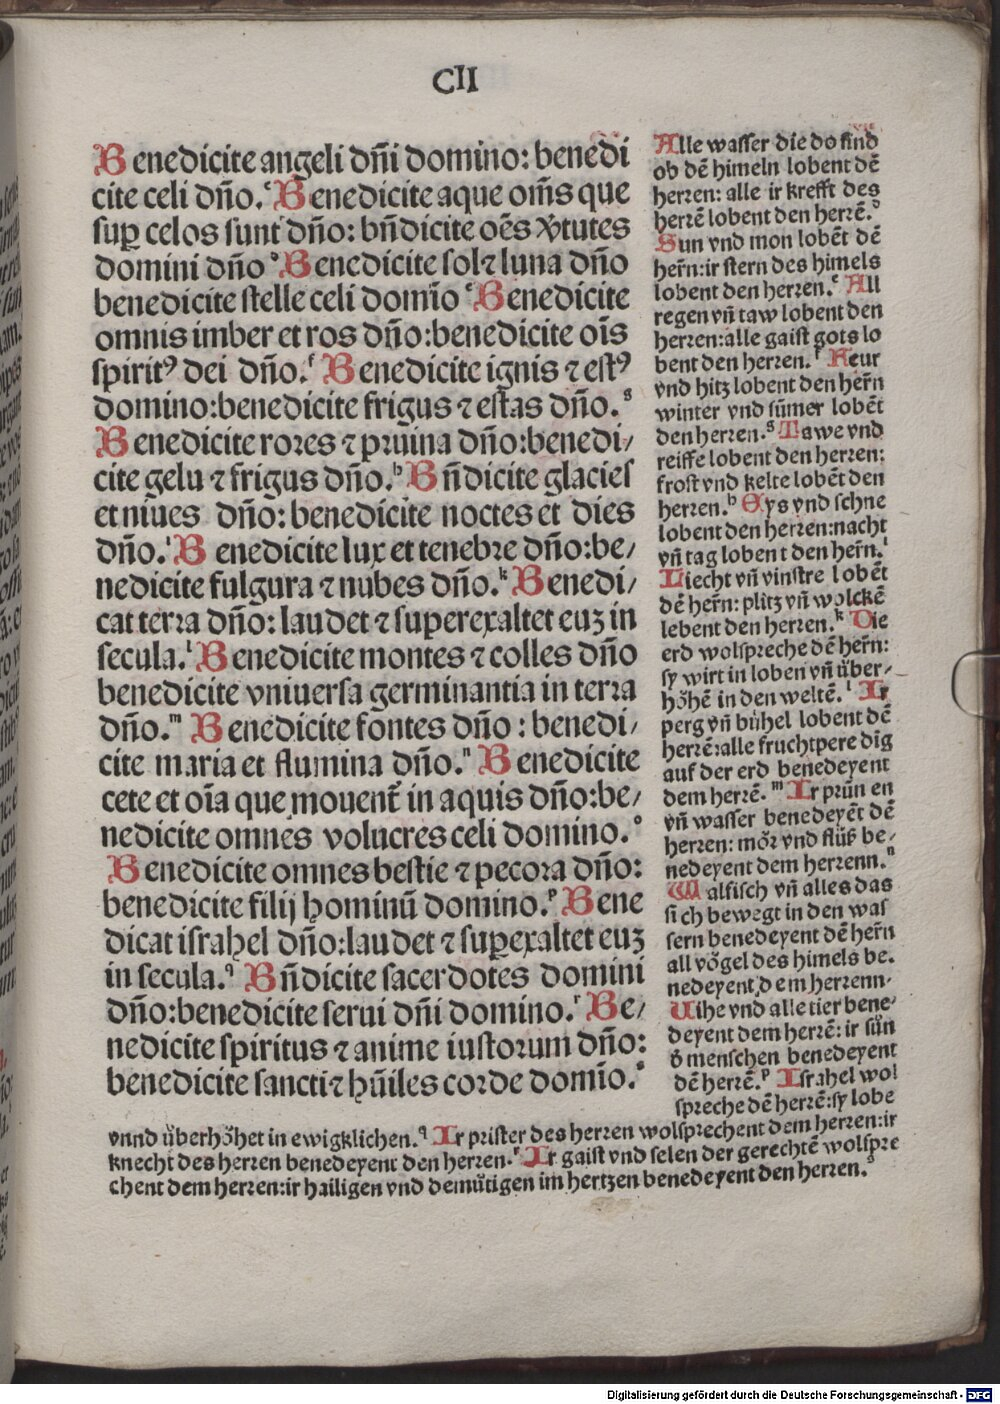 CII
Benedicite angeli dñi domino: benedi
cite celi dño. Benedicite aque om̄s que
suꝑ celos sunt dño: bñdicite oēs v̓tutes
domini dño Benedicite sol ⁊ luna dño
benedicite stelle celi domīo Benedicite
omnis imber et ros dño: benedicite oīs
spiritꝰ dei dño. Benedicite ignis ⁊ estꝰ
domino: benedicite frigus ⁊ estas dño.
Benedicite rores ⁊ pruina dño: benedi/
cite gelu ⁊ frigus dño. Bñdicite glacies
et niues dño: benedicite noctes et dies
dño. Benedicite lux et tenebre dño: be/
nedicite fulgura ⁊ nubes dño. Benedi/
cat terra dño: laudet ⁊ superexaltet euʒ in
secula. Benedicite montes ⁊ colles dño
benedicite vniuersa germinantia in terra
dño. Benedicite fontes dño: benedi/
cite maria et flumina dño. Benedicite
cete et oīa que mouent̄ in aquis dño: be/
nedicite omnes volucres celi domino.
Benedicite omnes bestie ⁊ pecora dño:
benedicite filij hominū domino. Bene
dicat israhel dño: laudet ⁊ suꝑexaltet euʒ
in secula. Bñdicite sacerdotes domini
dño: benedicite serui dñi domino. Be/
nedicite spiritus ⁊ anime iustorum dño:
benedicite sancti ⁊ hūiles corde domīo.
Alle wasser die do sind
ob dē himeln lobent dē
herren: alle ir krefft des
herrē lobent den herrē.
Sun vnd mon lobēt dē
herñ: ir stern des himels
lobent den herren. All
regen vñ taw lobent den
herren: alle gaist gots lo
bent den herren. Feur
vnd hitz lobent den herñ
winter vnd sūmer lobēt
den herren. Tawe vnd
reiffe lobent den herren:
frost vnd kelte lobēt den
herren. Eys vnd schne
lobent den herren: nacht
vñ tag loben t den herñ.
Liecht vñ vinstre lobēt
dē herñ: plitz vñ wolckē
lebent den herren. Die
erd wolspreche dē herñ:
sy wirt in loben vñ über/
höhē in den weltē. Ir
perg vñ bühel lobent dē
herrē: alle fruchtpere dīg
auf der erd benedeyent
dem herrē. Ir prūn en
vñ wasser benedeyēt dē
herren: mör vnd flüß be/
nedeyent dem herrenn.
Walfisch vñ alles das
si ch bewegt in den was
sern benedeyent dē herñ
all vögel des himels be.
nedeyent d em herrenn.
Uihe vnd alle tier bene/
deyent dem herrē: ir sün
d̓ menschen benedeyent
dē herrē. Israhel wol
spreche dē herrē: sy lobe
vnnd überhöhet in ewigklichen. Ir prister des herren wolsprechent dem herren: ir
knecht des herren benedeyent den herren. Ir gaist vnd selen der gerechtē wolspre
chent dem herren: ir hailigen vnd demütigen im hertzen benedeyent den herren.
Digitalisierung gefördert durch die Deutsche Forschungsgemeinschaft - DFG